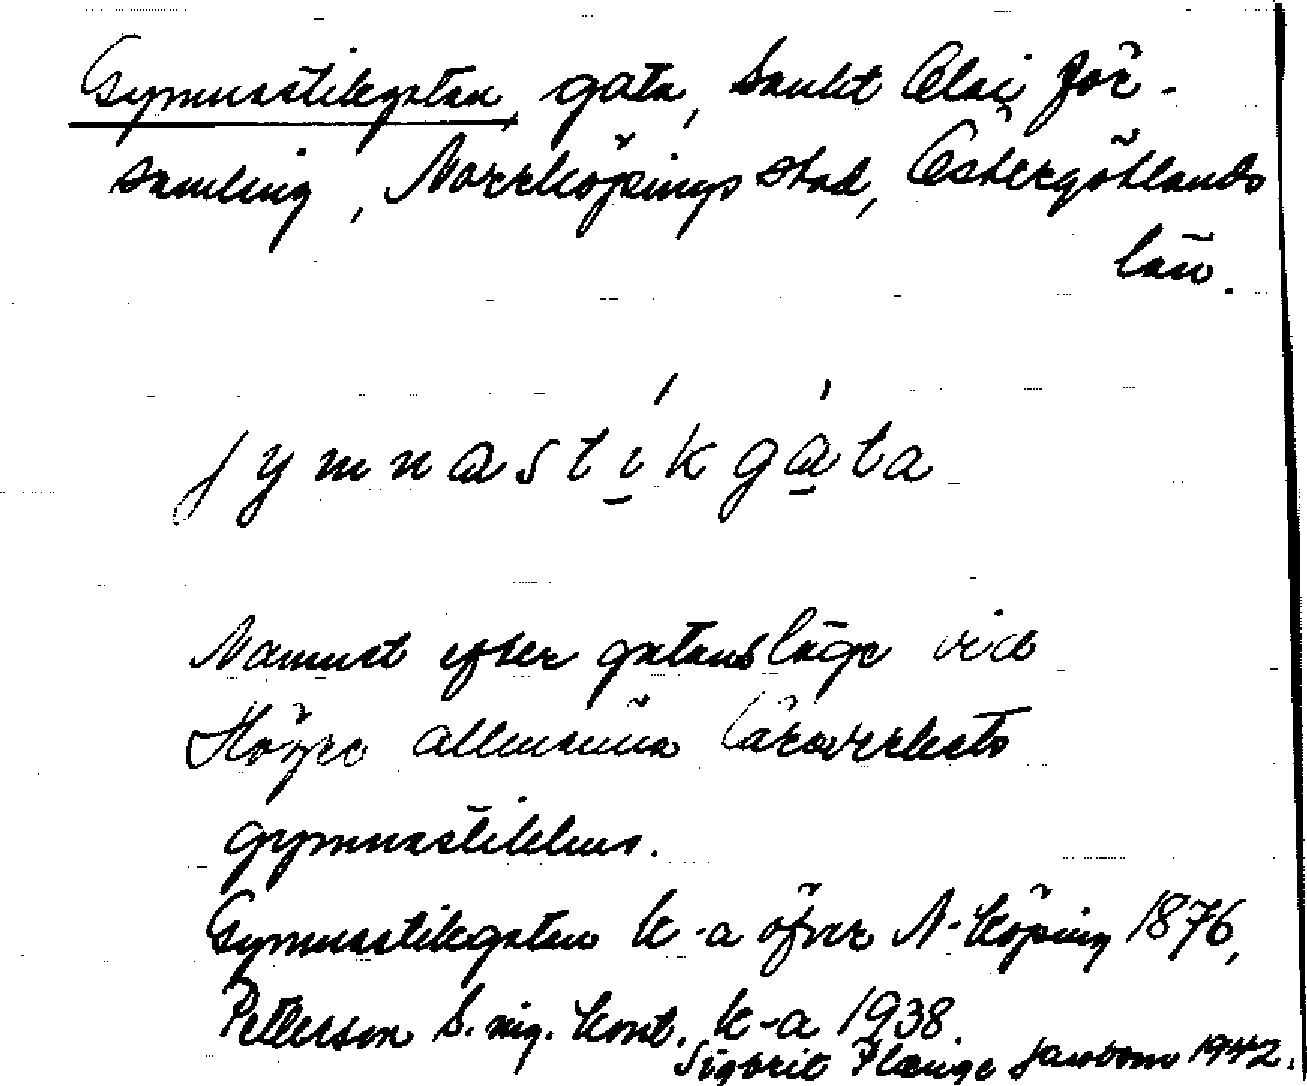 Gymnastikgatan, gata, Sankt Olai för-
samling, Norrköpings stad, Östergötlands
län.
jymnastikgata
Namnet efter gatans läge vid
Högre allmänna läroverkets
gymnastikhus.
Gymnastikgatan k-a öfver N-köping 1876,
Petterson S. ing. kont. k-a 1938.
Sigbrit Plænge Jacobson 1942.